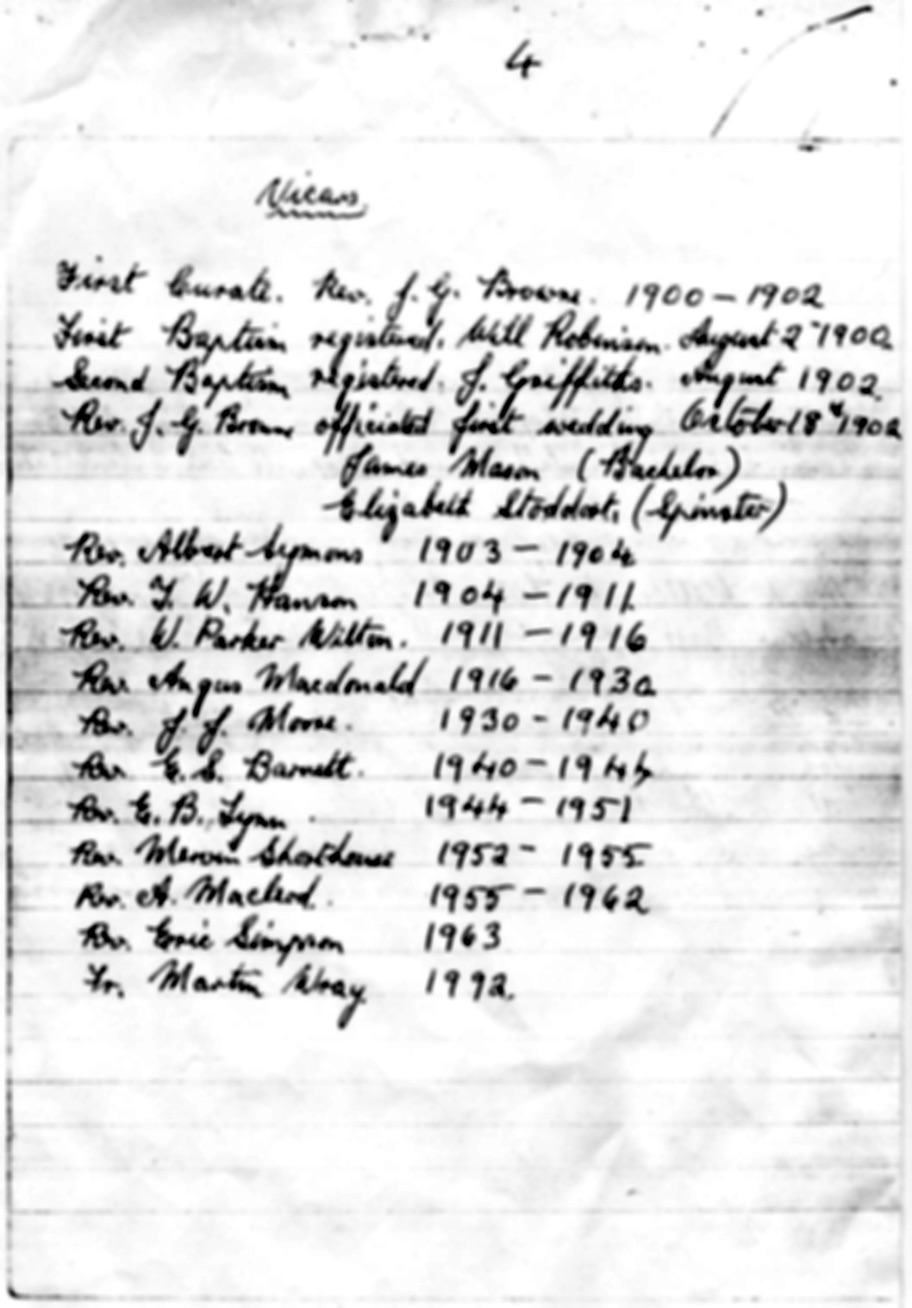 4
Vicars
First Curate. Rev. J. G. Browne. 1900 – 1902
First Baptism registered. Will Robinson. August 2 1900
Second Baptism registered. J. Griffiths. August 1902.
Rev. J. G. Browne officiated first wedding October 18th 1902
James Mason (Bachelor)
Elizabeth Stoddart, (Spinster)
Rev. Albert Symons 1903 – 1904
Rev. W. Hanson 1904 – 1911
Rev. W. Parker Wilton. 1911 – 1916
Rev. Angus Macdonald 1916 – 1930
Rev. J. J. Moore. 1930 – 1940
Rev. Barnett. 1940 – 1944
Rev. E. B. Lynn 1944 – 1951
Rev. Mervin Shorthouse 1952 – 1955
Rev. A. Macleod. 1955 – 1962
Rev. Eric Simpson 1963
Fr. Martin Wray 1992.